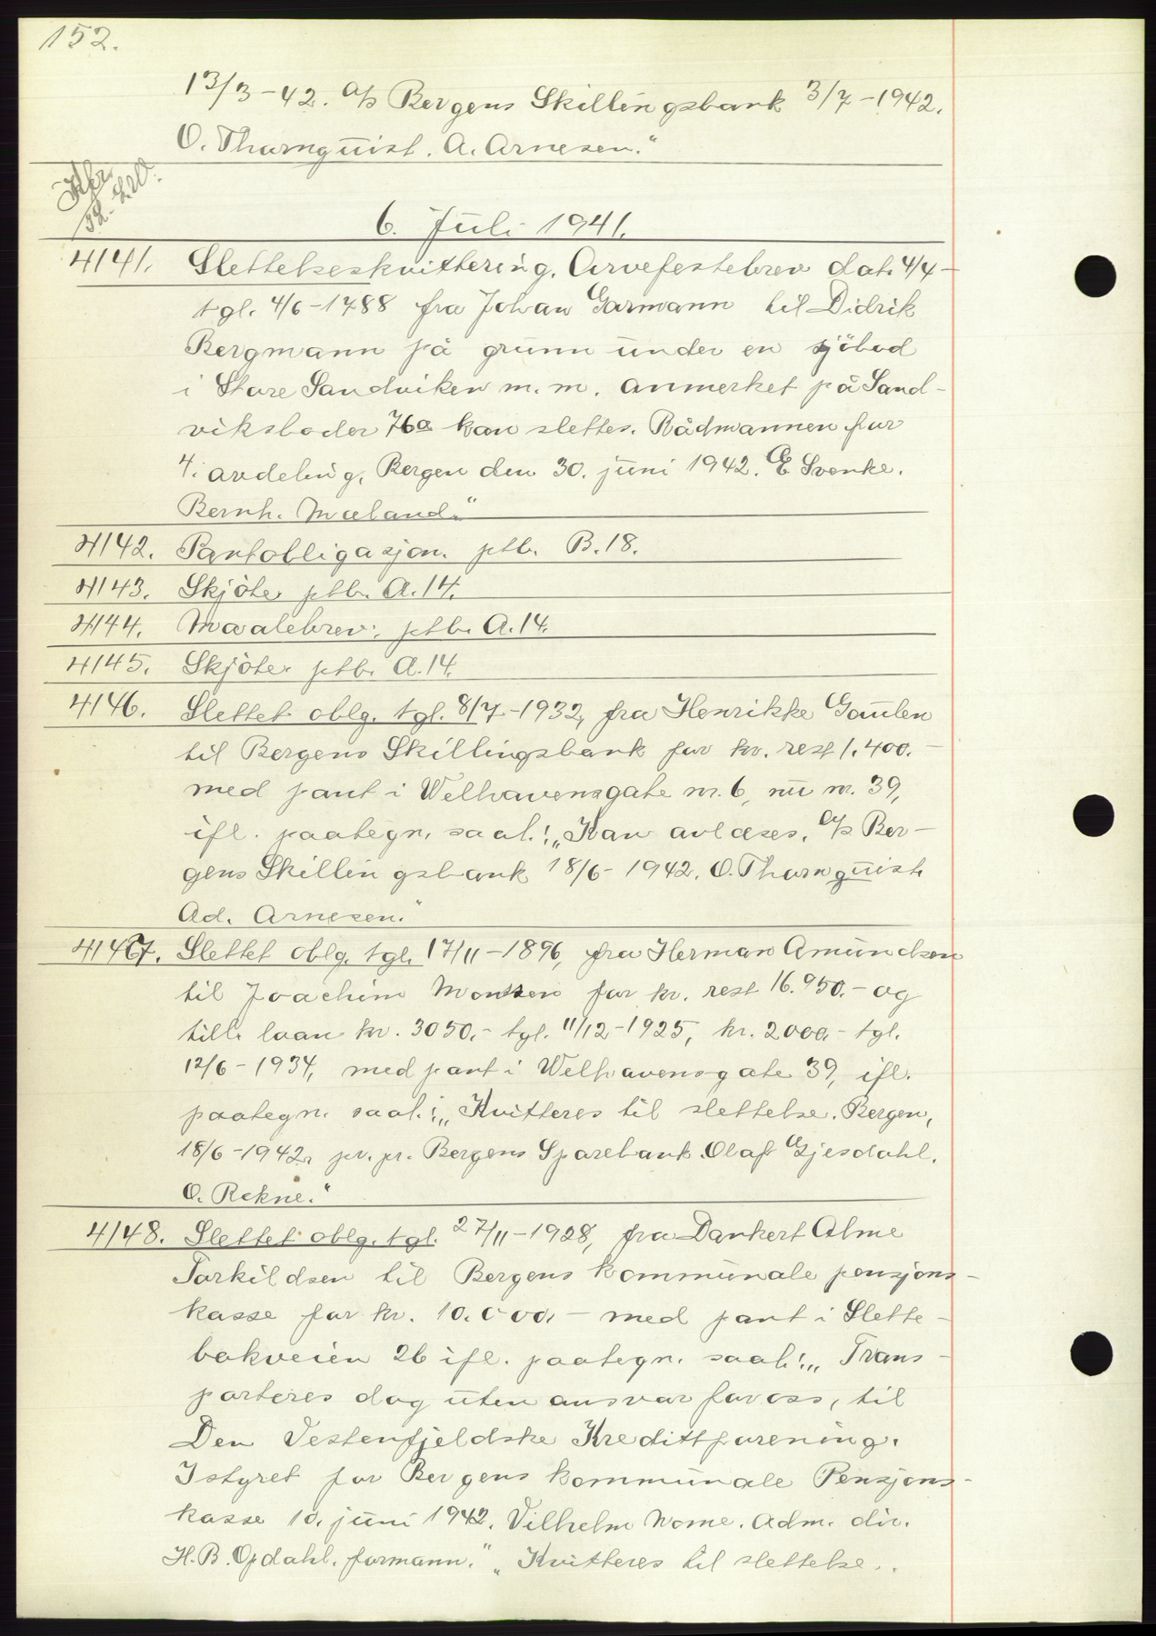 152.
13/3-42. A/S Bergens Skillingsbank 3/7-1942.
O. Thornquist. A. Arnesen."
6. Juli 1941.
4141. Slettelseskvittering. Arvefestebrev dat. 4/4-
tgl. 4/6-1788 fra Johan Garmann til Didrik
Bergmann på grunn under en sjöbod
i Store Sandviken m.m. anmerket på Sand-
viksboder 76a kan slettes. Rådmannen for
4. avdeling, Bergen den 30. juni 1942. E Svenke.
Bernh. Mæland."
4142. Pantobligasjon. ptb. B.18.
4143. Skjöte, ptb. A.14.
4144. Maalebrev, ptb. A.14.
4145. Skjöte. ptb. A.14.
4146. Slettet oblg. tgl. 8/7-1932, fra Henrikke Gaulen
til Bergens Skillingsbank for kr. rest 1.400.-
med pant i Welhavensgate nr. 6, nu nr. 39,
ifl. paategn. saal.: „Kan avlæses. A/S Ber-
gens Skillingsbank 18/6-1942. O. Thornquist.
Ad. Arnesen."
4147. Slettet oblg. tgl. 17/11-1896, fra Herman Amundsen
til Joachim Monsen for kr. rest 16.950.- og
till. laan kr. 3050.- tgl. 11/12-1925, kr. 2000.- tgl.
12/6-1934, med pant i Welhavensgate 39, ifl.
paategn. saal.: „Kvitteres til slettelse. Bergen,
18/6-1942. pr. pr. Bergens Sparebank. Olaf Gjesdahl.
O. Rekne."
4148. Slettet oblg. tgl. 27/11-1928, fra Dankert Alme
Torkildsen til Bergens kommunale pensjons-
kasse for kr. 10.000.- med pant i Slette-
bakveien 26 ifl. paategn. saal.: „Trans-
porteres dog uten ansvar for oss, til
Den Vestenfjeldske Kredittforening.
I styret for Bergens kommunale Pensjons-
kasse 10. juni 1942. Vilhelm Norne. Adm. dir.
H.B. Opdahl. formann." „Kvitteres til slettelse..